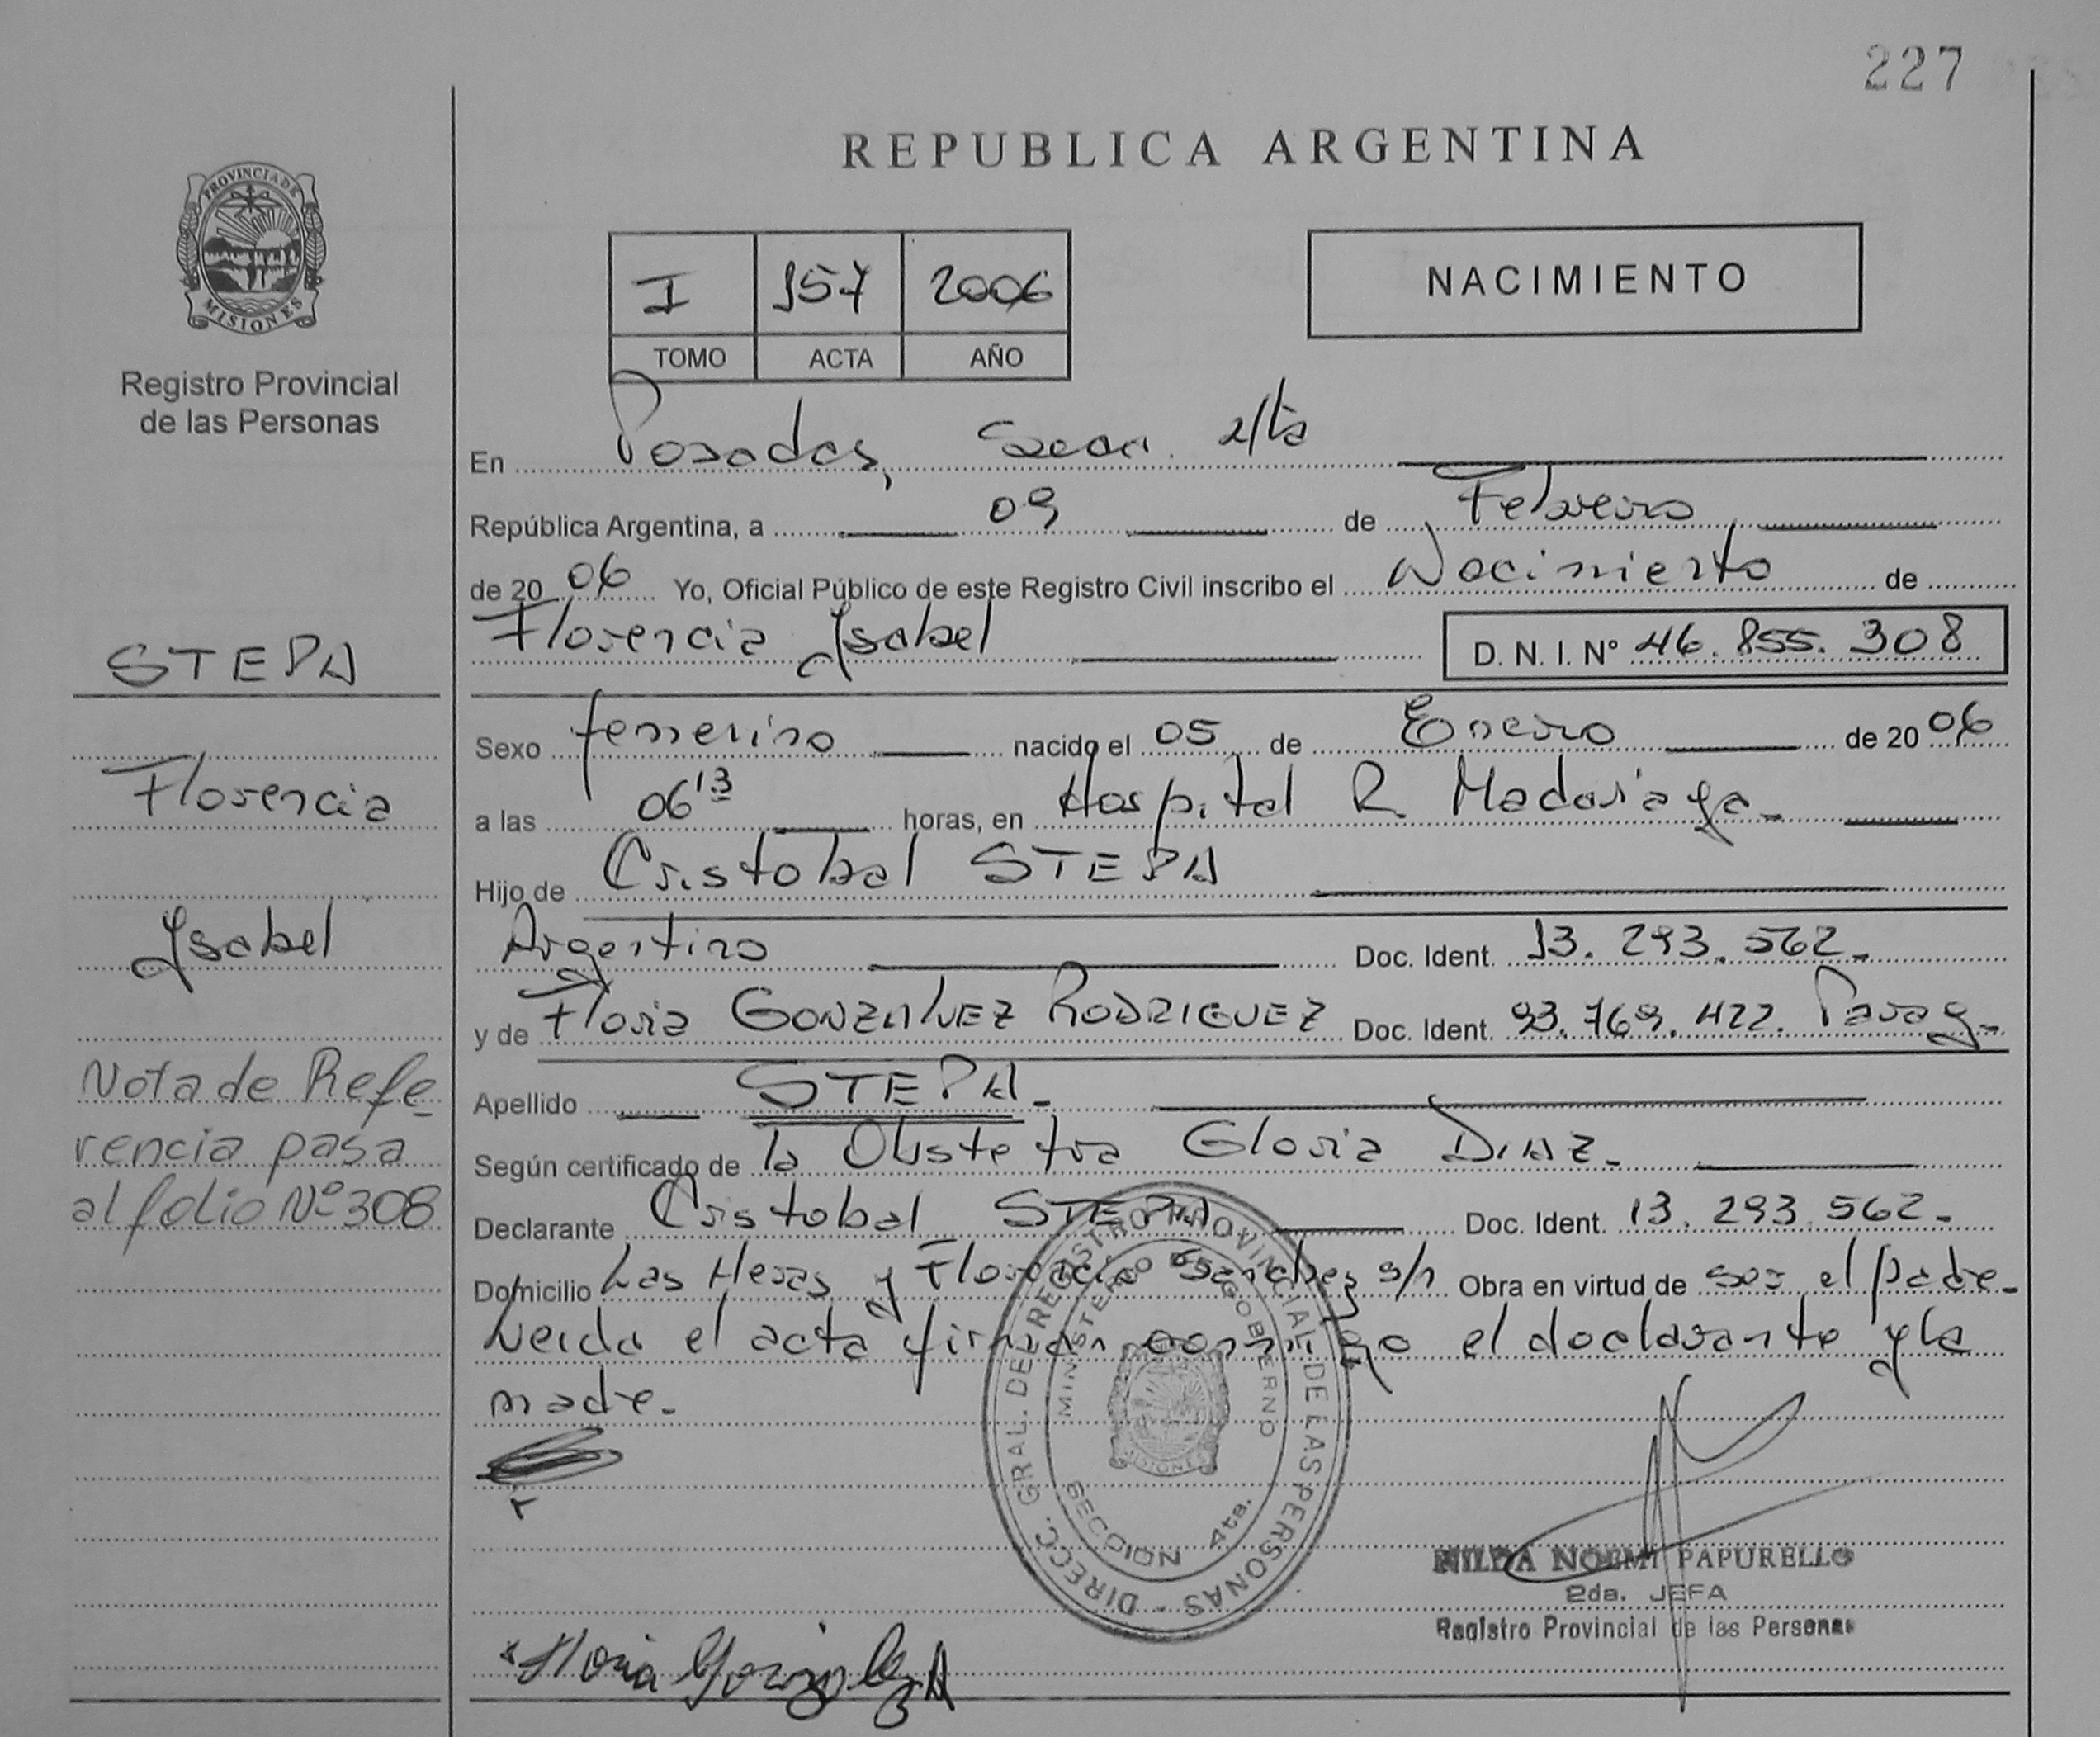 227
REPUBLICA ARGENTINA
PROVINCIA DE
MISIONES
Registro Provincial
de las Personas
I 157 2006
TOMO ACTA AÑO
NACIMIENTO
En Posadas, Secc. 4ta
República Argentina, a 09 de Febrero
de 2006 Yo, Oficial Público de este Registro Civil inscribo el Nacimiento de
Florencia Ysabel D. N. I. Nº 46.855.308
Sexo femenino nacido el 05 de Enero de 2006
a las 06 13 horas, en Hospital R Madariaga
Hijo de Cristobal STEPA
Argentino Doc. Ident. 13.293.562.
y de Floria GONZALEZ RODRIGUEZ Doc. Ident. 93.769.422. Parag.
Apellido STEPA.
Según certificado de la Obstetra Gloria DIAZ.
Declarante Cristobal STEPA Doc. Ident. 13.293.562.
Domicilio Las Heras y Florencio Sanchez s/n Obra en virtud de ser el padre.
Leida el acta firman conmigo el declarante y la
madre.
STEPA
Florencia
Ysabel
Nota de Refe-
rencia pasa
al folio Nº 308
DIRECC. GRAL. DEL REGISTRO PROVINCIAL DE LAS PERSONAS -
MINISTERIO DE GOBIERNO
MISIONES
SECCION 4ta.
NILDA NOEMI PAPURELLO
2da. JEFA
Registro Provincial de las Personas